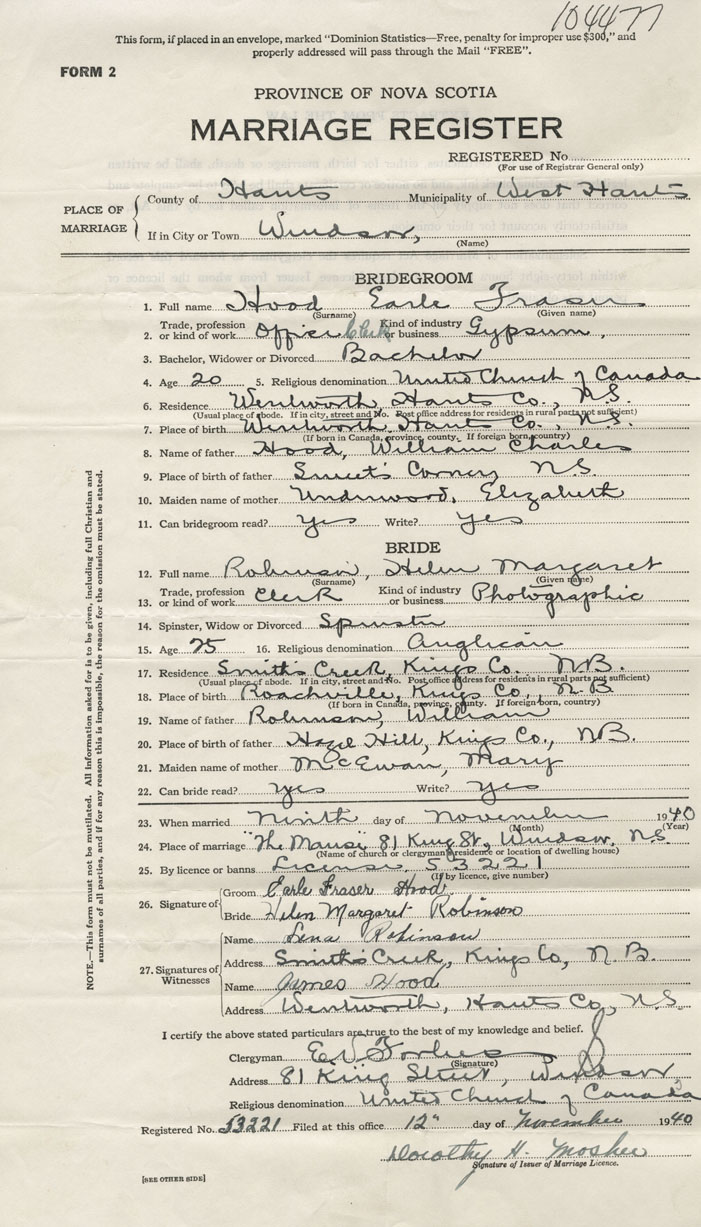 104477
This form, if placed in an envelope, marked "Dominion Statistics—Free, penalty for improper use $300," and
properly addressed will pass through the Mail "FREE".
FORM 2
PROVINCE OF NOVA SCOTIA
MARRIAGE REGISTER
REGISTERED No.
(For use of Registrar General only)
PLACE OF MARRIAGE
County of Hants Municipality of West Hants
If in City or Town Windsor,
(Name)
BRIDEGROOM
1. Full name Hood Earle Fraser
(Surname) (Given name)
2. Trade, profession or kind of work Office Clerk Kind of industry or business Gypsum,
3. Bachelor, Widower or Divorced Bachelor
4. Age 20 5. Religious denomination United Church of Canada
6. Residence Wentworth, Hants Co., N.S.
(Usual place of abode. If in city, street and No. Post office address for residents in rural parts not sufficient)
7. Place of birth Wentworth, Hants Co., N.S.
(If born in Canada, province, county. If foreign born, country)
8. Name of father Hood, William Charles
9. Place of birth of father Sweet's Corner, N.S
10. Maiden name of mother Underwood, Elizabeth
11. Can bridegroom read? yes Write? yes
BRIDE
12. Full name Robinson, Helen Margaret
(Surname) (Given name)
13. Trade, profession or kind of work Clerk Kind of industry or business Photographic
14. Spinster, Widow or Divorced Spinster
15. Age 25 16. Religious denomination Anglican
17. Residence Smith's Creek, Kings Co. N.B.
(Usual place of abode. If in city, street and No. Post office address for residents in rural parts not sufficient)
18. Place of birth Roachville, Kings Co., N.B
(If born in Canada, province, county. If foreign born, country)
19. Name of father Robinson, William
20. Place of birth of father Hazel Hill, Kings Co., N.B.
21. Maiden name of mother McEwan, Mary
22. Can bride read? yes Write? yes
23. When married Ninth day of November 1940
(Month) (Year)
24. Place of marriage "The Manse" 81 King St., Windsor, N.S.
(Name of church or clergyman's residence or location of dwelling house)
25. By licence or banns License 53221
(If by licence, give number)
26. Signature of
Groom Earle Fraser Hood
Bride Helen Margaret Robinson
27. Signatures of Witnesses
Name Lena Robinson
Address Smith's Creek, Kings Co, N.B.
Name James Hood
Address Wentworth, Hants Co, N.S.
I certify the above stated particulars are true to the best of my knowledge and belief.
Clergyman E V Forbes
(Signature)
Address 81 King Street, Windsor
Religious denomination United Church of Canada
Registered No. 53221 Filed at this office 12" day of November 1940
Dorothy H. Mosher
Signature of Issuer of Marriage Licence.
[SEE OTHER SIDE]
NOTE.—This form must not be mutilated. All information asked for is to be given, including full Christian and
surnames of all parties, and if for any reason this is impossible, the reason for the omission must be stated.